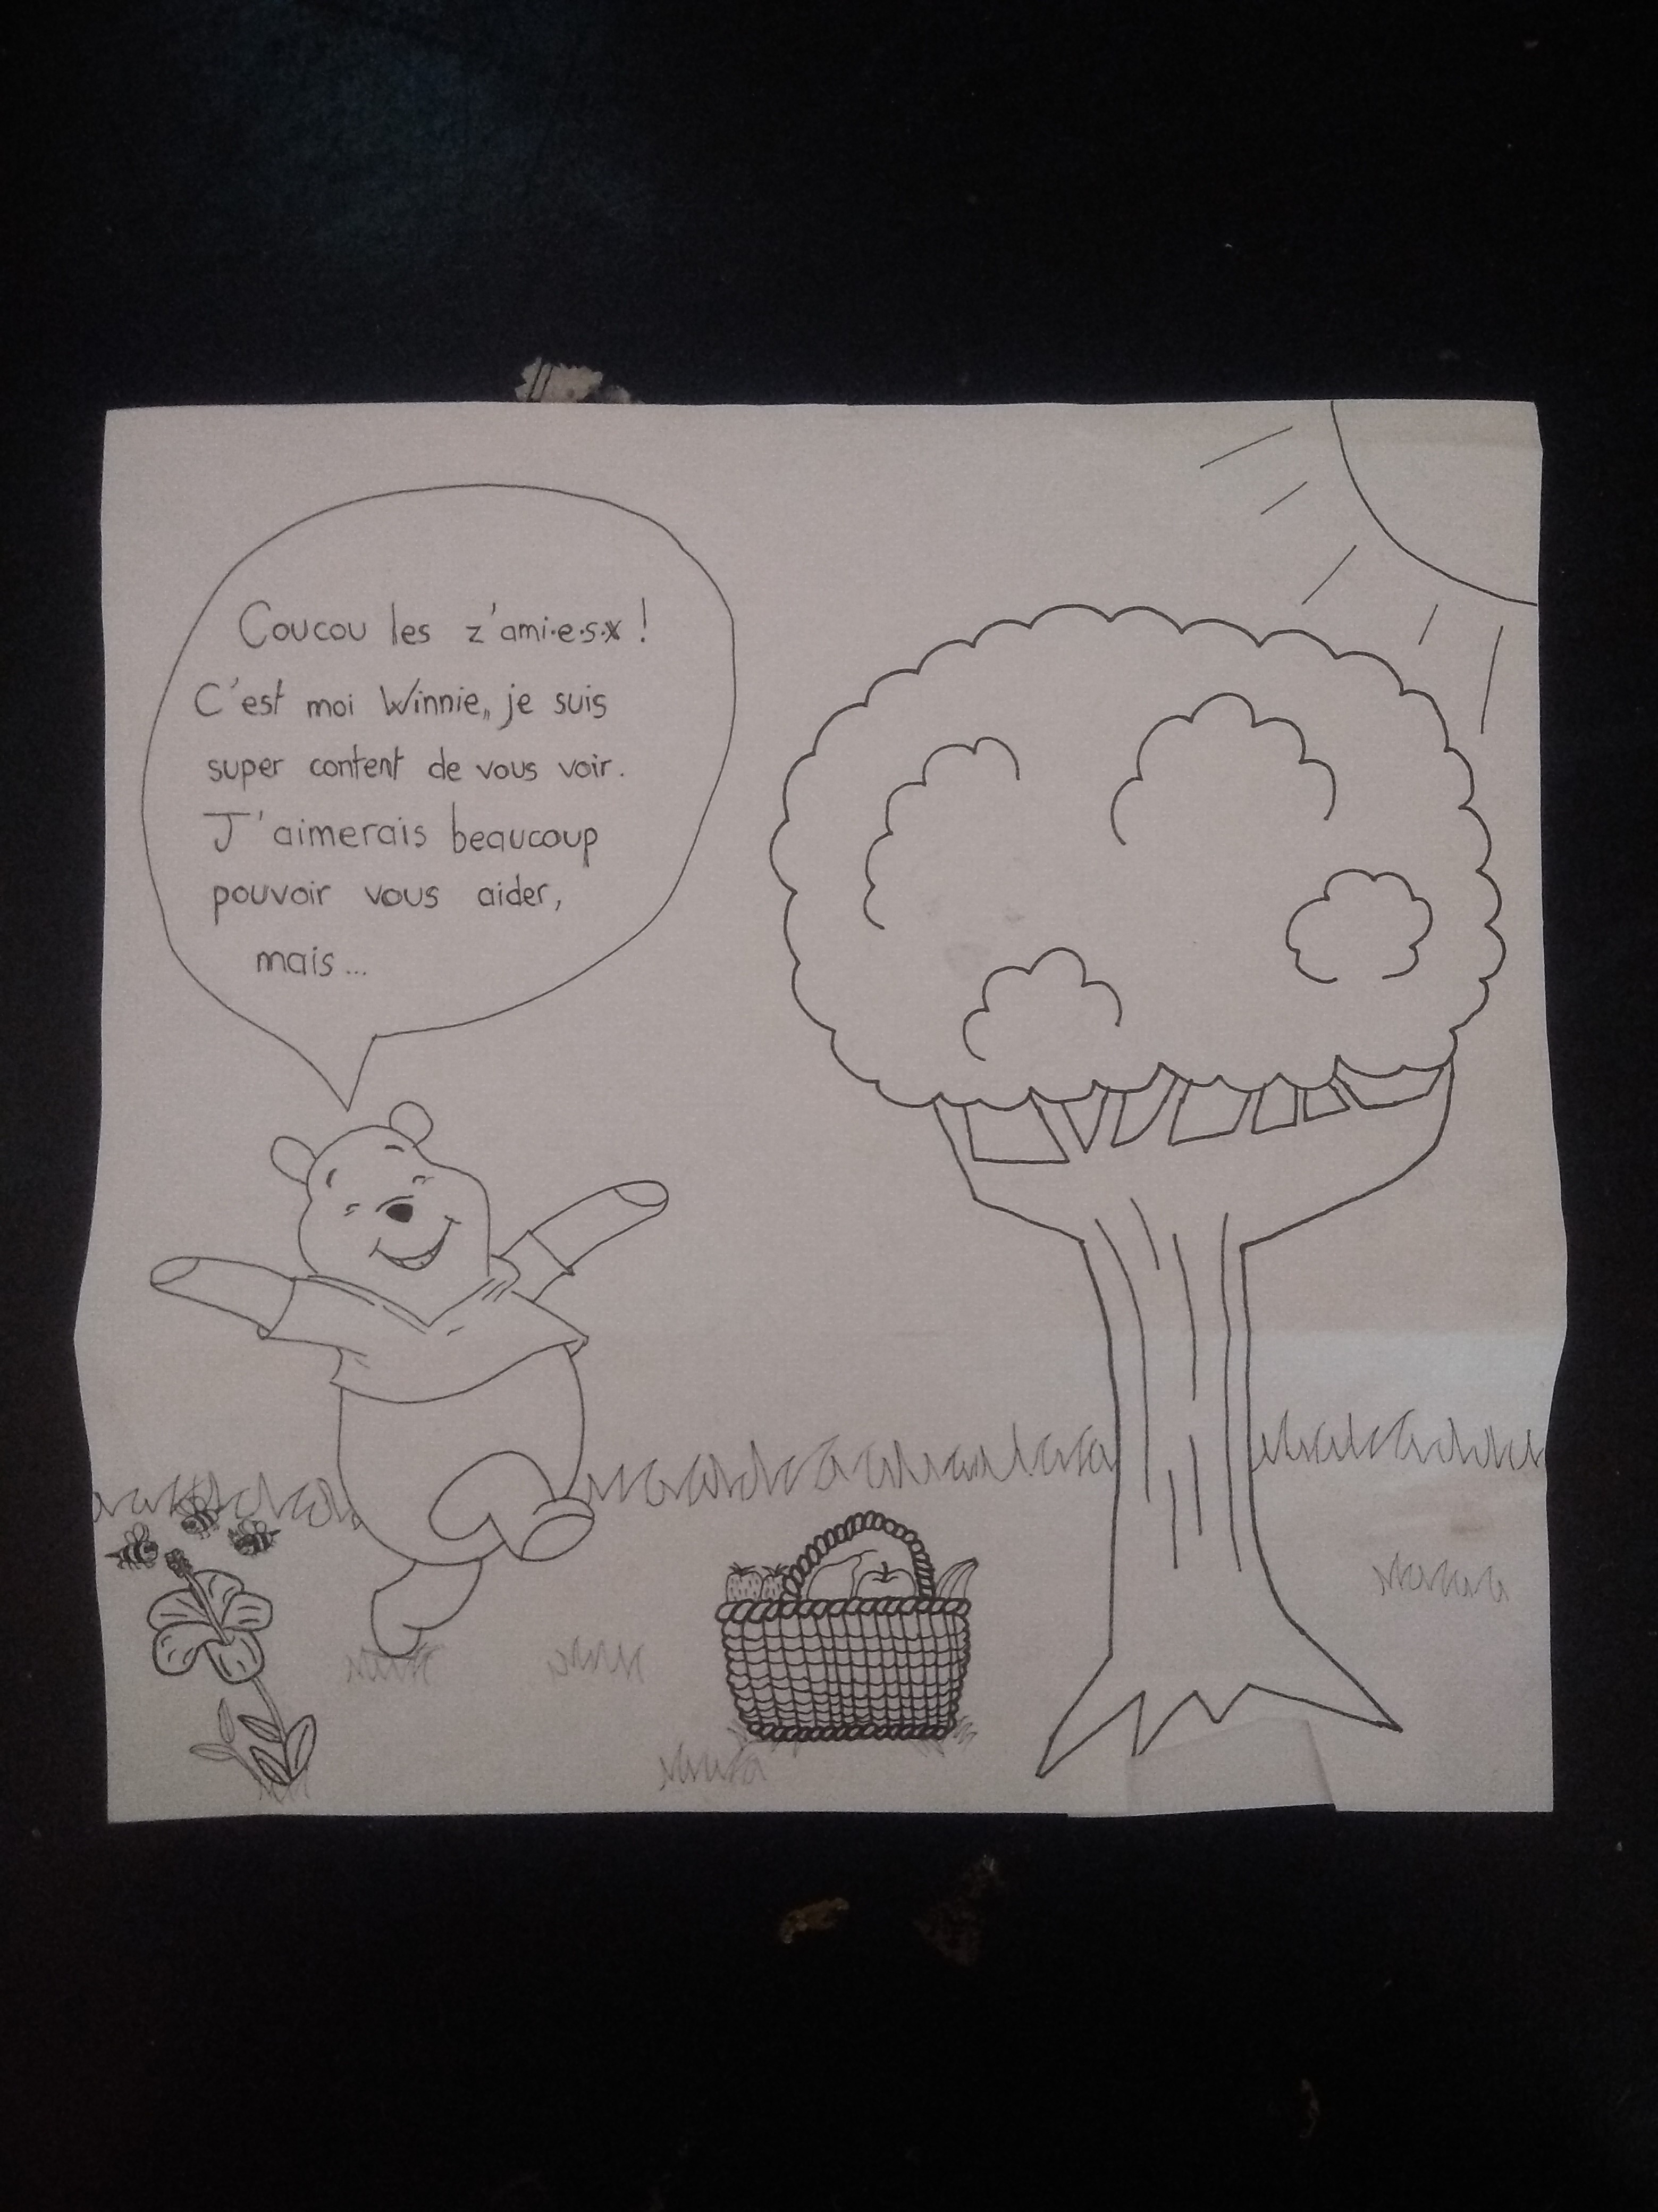 Coucou les z'ami·e·s·x !
C'est moi Winnie, je suis
super content de vous voir.
J'aimerais beaucoup
pouvoir vous aider,
mais...